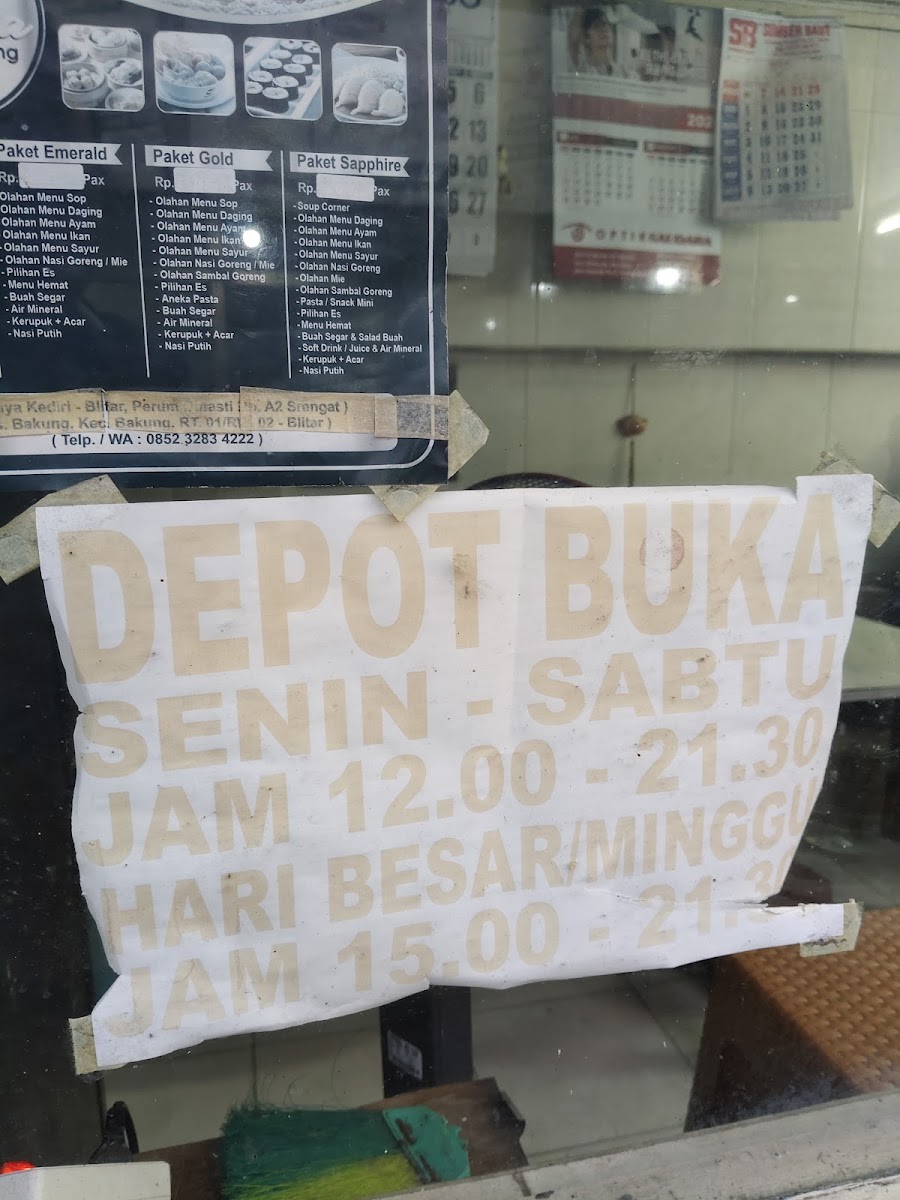 ng
Paket Emerald
Rp. Pax
Olahan Menu Sop
Olahan Menu Daging
Olahan Menu Ayam
Olahan Menu Ikan
Olahan Menu Sayur
- Olahan Nasi Goreng / Mie
- Pilihan Es
- Menu Hemat
- Buah Segar
- Air Mineral
- Kerupuk + Acar
- Nasi Putih
Paket Gold
Rp. Pax
- Olahan Menu Sop
- Olahan Menu Daging
- Olahan Menu Ayam
- Olahan Menu Ikan
- Olahan Menu Sayur
- Olahan Nasi Goreng / Mie
- Olahan Sambal Goreng
- Pilihan Es
- Aneka Pasta
- Buah Segar
- Air Mineral
- Kerupuk + Acar
- Nasi Putih
Paket Sapphire
Rp. Pax
- Soup Corner
- Olahan Menu Daging
- Olahan Menu Ayam
- Olahan Menu Ikan
- Olahan Menu Sayur
- Olahan Nasi Goreng
- Olahan Mie
- Olahan Sambal Goreng
- Pasta / Snack Mini
- Pilihan Es
- Menu Hemat
- Buah Segar & Salad Buah
- Soft Drink / Juice & Air Mineral
- Kerupuk + Acar
- Nasi Putih
Kediri - Blitar, Perum A2 Srengat )
Bakung, Kec. Bakung, RT. 01/ 02 - Blitar )
( Telp. / WA : 0852 3283 4222 )
SB
OPTIK
DEPOT BUKA
SENIN - SABTU
JAM 12.00 - 21.30
HARI BESAR/MINGGU
JAM 15.00 - 21.30